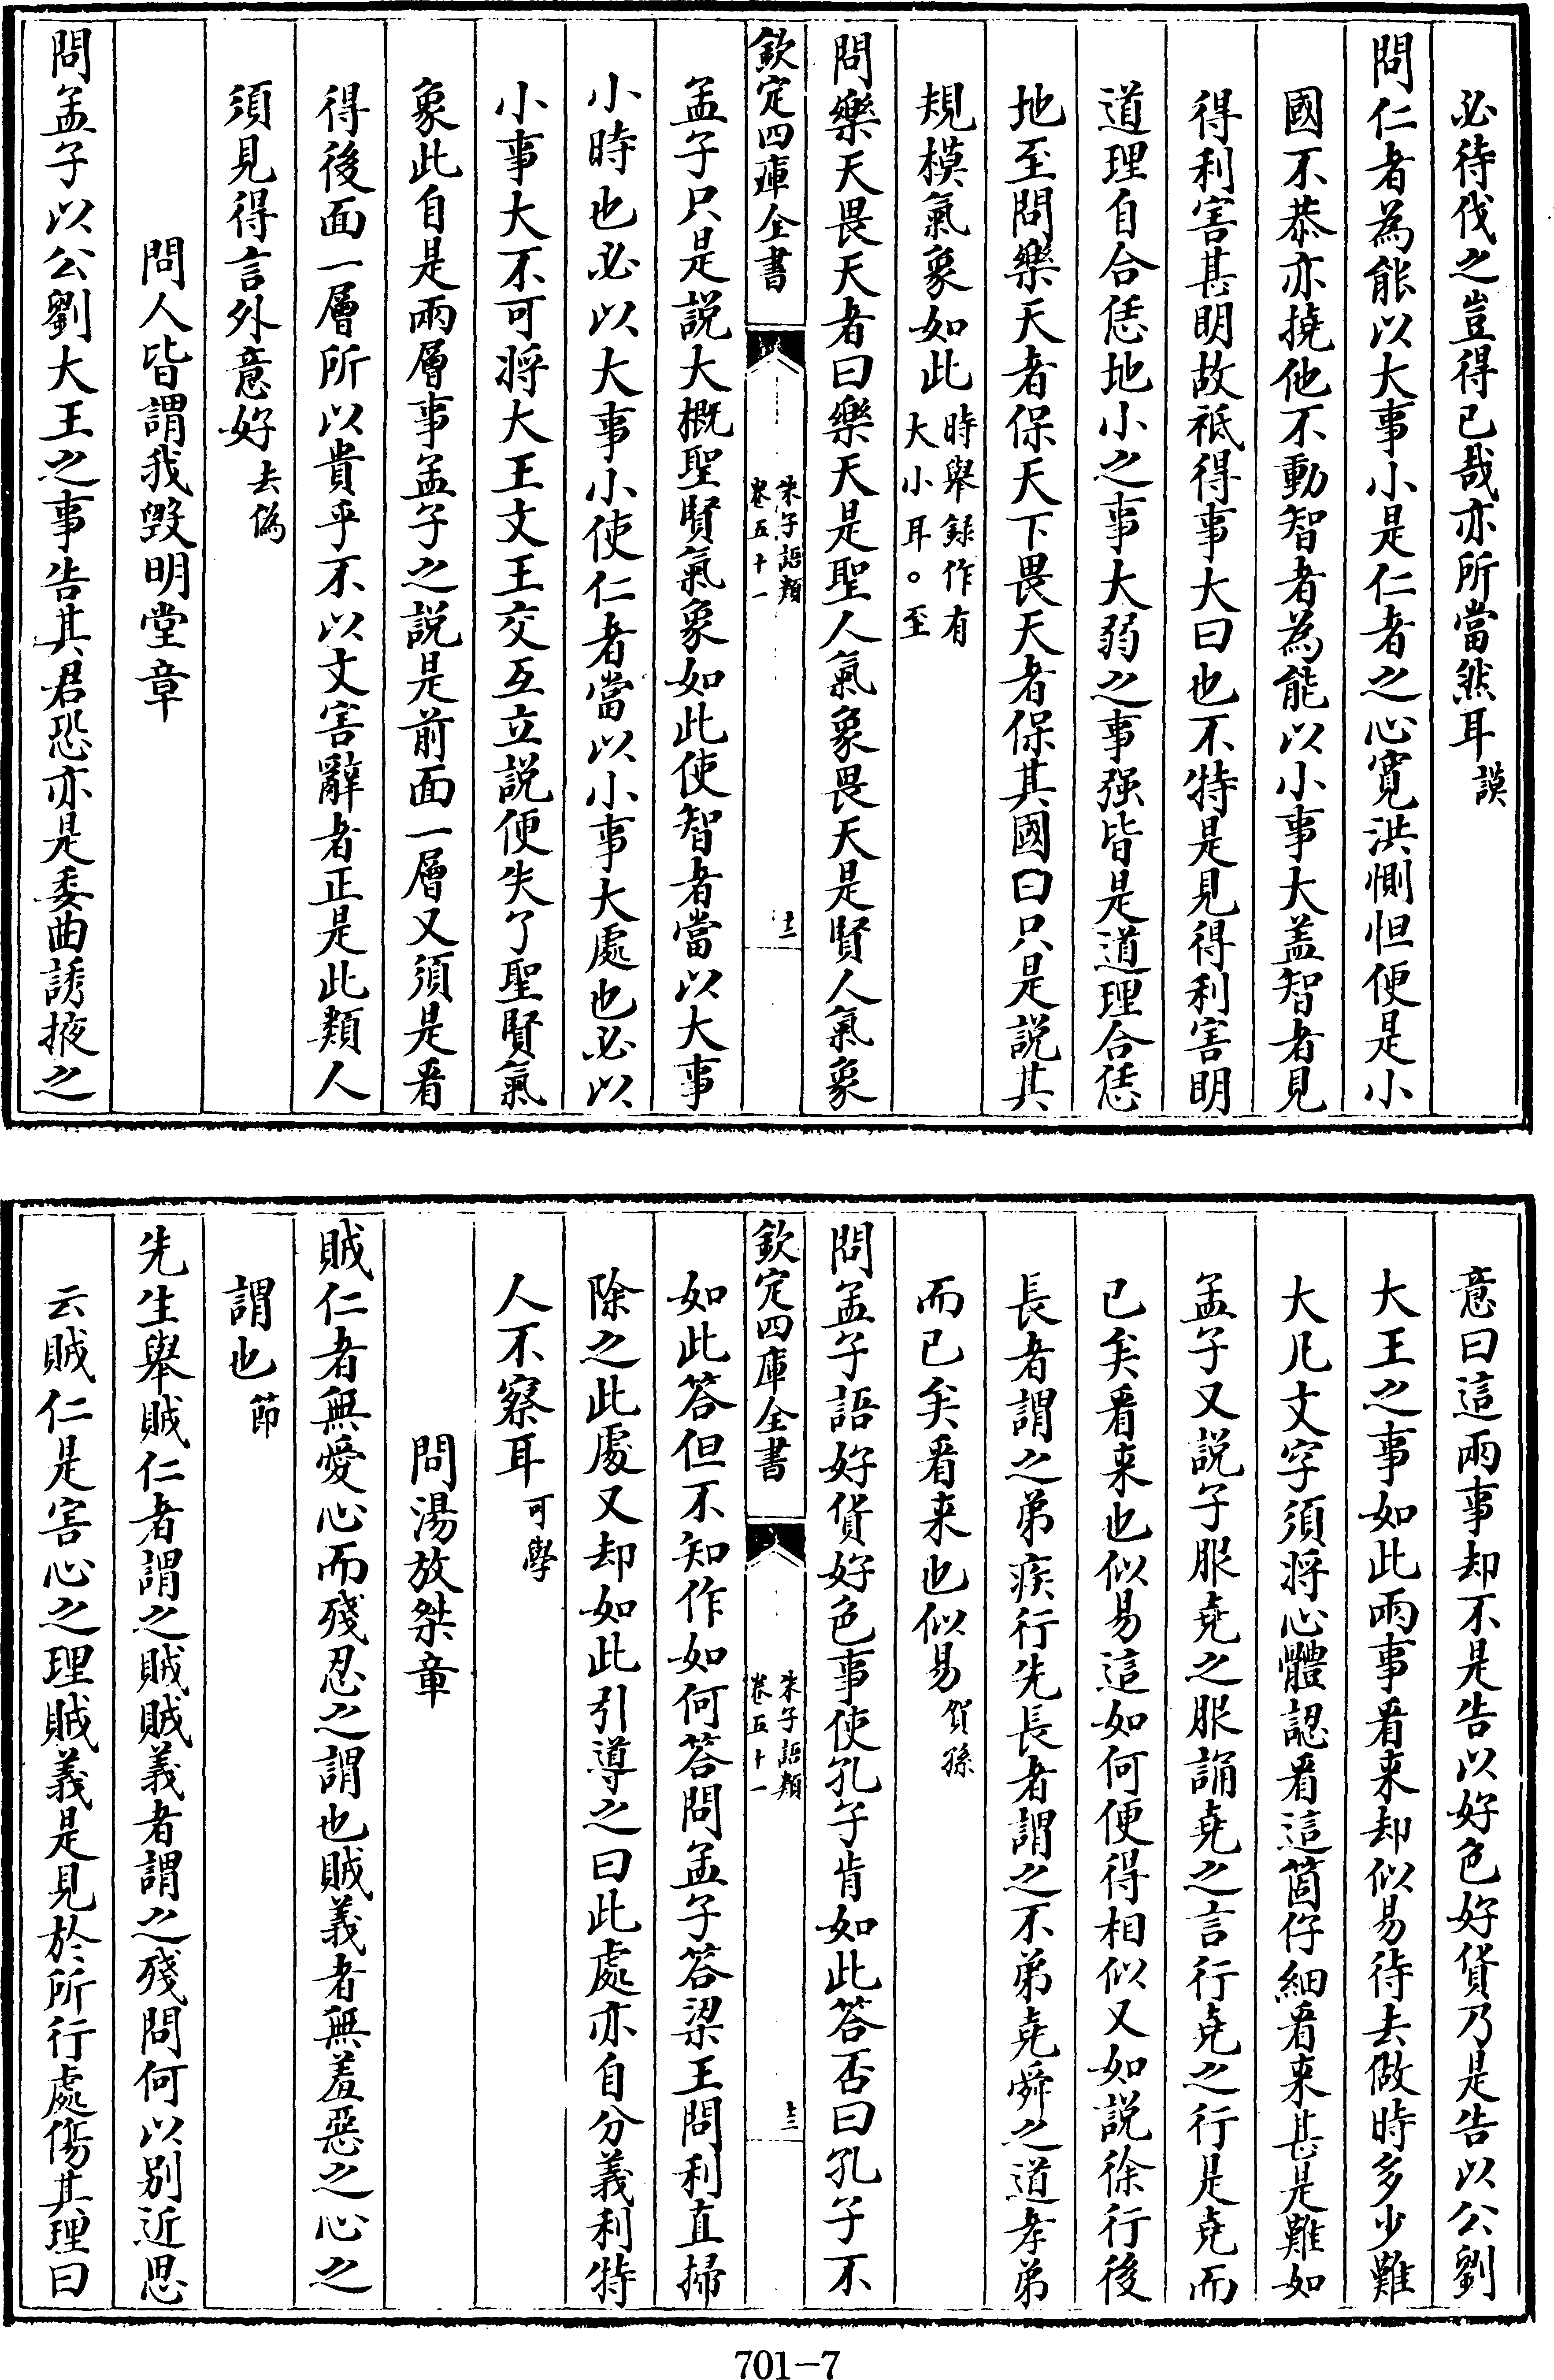 必待伐之豈得已哉亦所當然耳謨
問仁者為能以大事小是仁者之心寛洪惻怛便是小
國不恭亦撓他不動智者為能以小事大盖智者見
得利害甚明故祗得事大曰也不特是見得利害明
道理自合恁地小之事大弱之事强皆是道理合恁
地至問樂天者保天下畏天者保其國曰只是説其
規模氣象如此時舉録作有大小耳。至
問樂天畏天者曰樂天是聖人氣象畏天是賢人氣象
欽定四庫全書
朱子語類
卷五十一
十二
孟子只是説大槪聖賢氣象如此使智者當以大事
小時也必以大事小使仁者當以小事大處也必以
小事大不可將大王文王交互立説便失了聖賢氣
象此自是兩層事孟子之説是前面一層又須是看
得後面一層所以貴乎不以文害辭者正是此類人
須見得言外意好去偽
問人皆謂我毁明堂章
問孟子以公劉大王之事告其君恐亦是委曲誘掖之
意曰這兩事却不是告以好色好貨乃是告以公劉
大王之事如此兩事看来却似易待去做時多少難
大凡文字須將心體認看這箇仔細看来甚是難如
孟子又説子服堯之服誦堯之言行堯之行是堯而
已矣看来也似易這如何便得相似又如説徐行後
長者謂之弟疾行先長者謂之不弟堯舜之道孝弟
而已矣看来也似易賀孫
問孟子語好貨好色事使孔子肯如此答否曰孔子不
欽定四庫全書
朱子語類
卷五十一
十三
如此答但不知作如何答問孟子答梁王問利直掃
除之此處又却如此引導之曰此處亦自分義利特
人不察耳可學
問湯放桀章
賊仁者無愛心而殘忍之謂也賊義者無羞惡之心之
謂也節
先生舉賊仁者謂之賊賊義者謂之殘問何以别近思
云賊仁是害心之理賊義是見於所行處傷其理曰
701-7